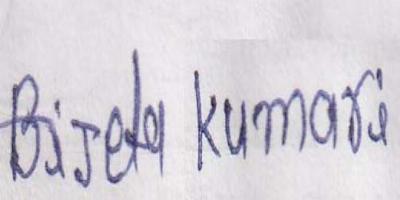 Bijeta kumari